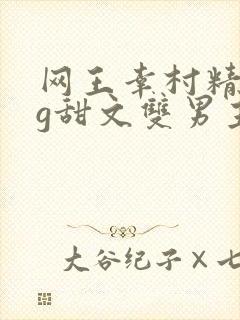 网王幸村精
g甜文雙男主
大谷纪子×七